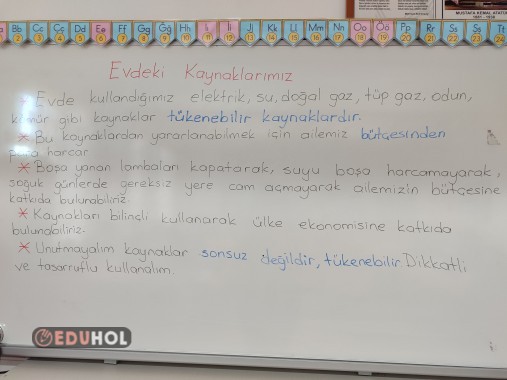 Bb Cc Çç Dd Ee Ff Gg Ğğ Hh Iı İi Jj Kk Ll Mm Nn Oo Öö Pp Rr Ss Şş Tt
2 3 4 5 6 7 8 9 10 11 12 13 14 15 16 17 18 19 20 21 22 23 24
MUSTAFA KEMAL ATATÜ
1881 - 1938
Evdeki Kaynaklarımız
Evde kullandığımız elektrik, su, doğal gaz, tüp gaz, odun,
kömür gibi kaynaklar tükenebilir kaynaklardır.
* Bu kaynaklardan yararlanabilmek için ailemiz bütçesinden
para harcar
* Boşa yanan lambaları kapatarak, suyu boşa harcamayarak,
soğuk günlerde gereksiz yere cam açmayarak ailemizin bütçesine
katkıda bulunabiliriz.
* Kaynakları bilinçli kullanarak ülke ekonomisine katkıda
bulunabiliriz.
* Unutmayalım kaynaklar sonsuz değildir, tükenebilir. Dikkatli
ve tasarruflu kullanalım.
EDUHOL